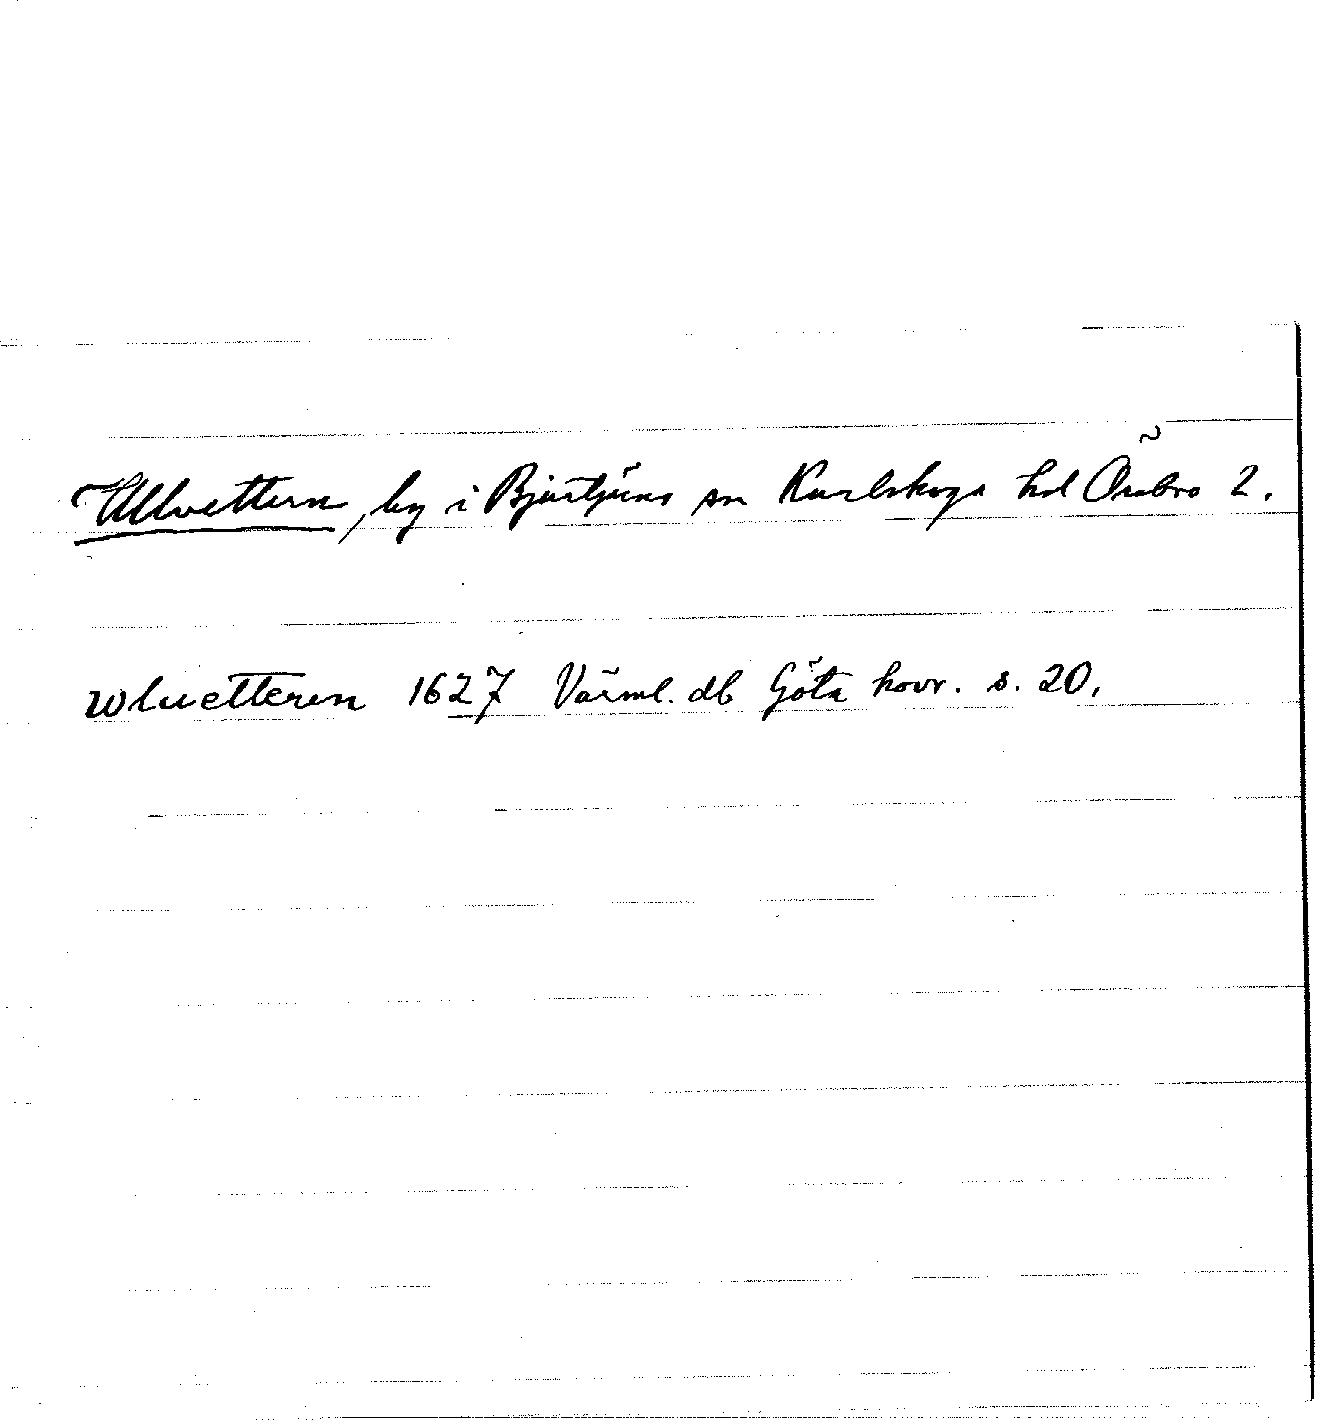 Ullvettern, by i Bjurtjärns sn Karlskoga hd Örebro l.
Wluetteren 1627 Värml. db Göta hovr. s. 20.